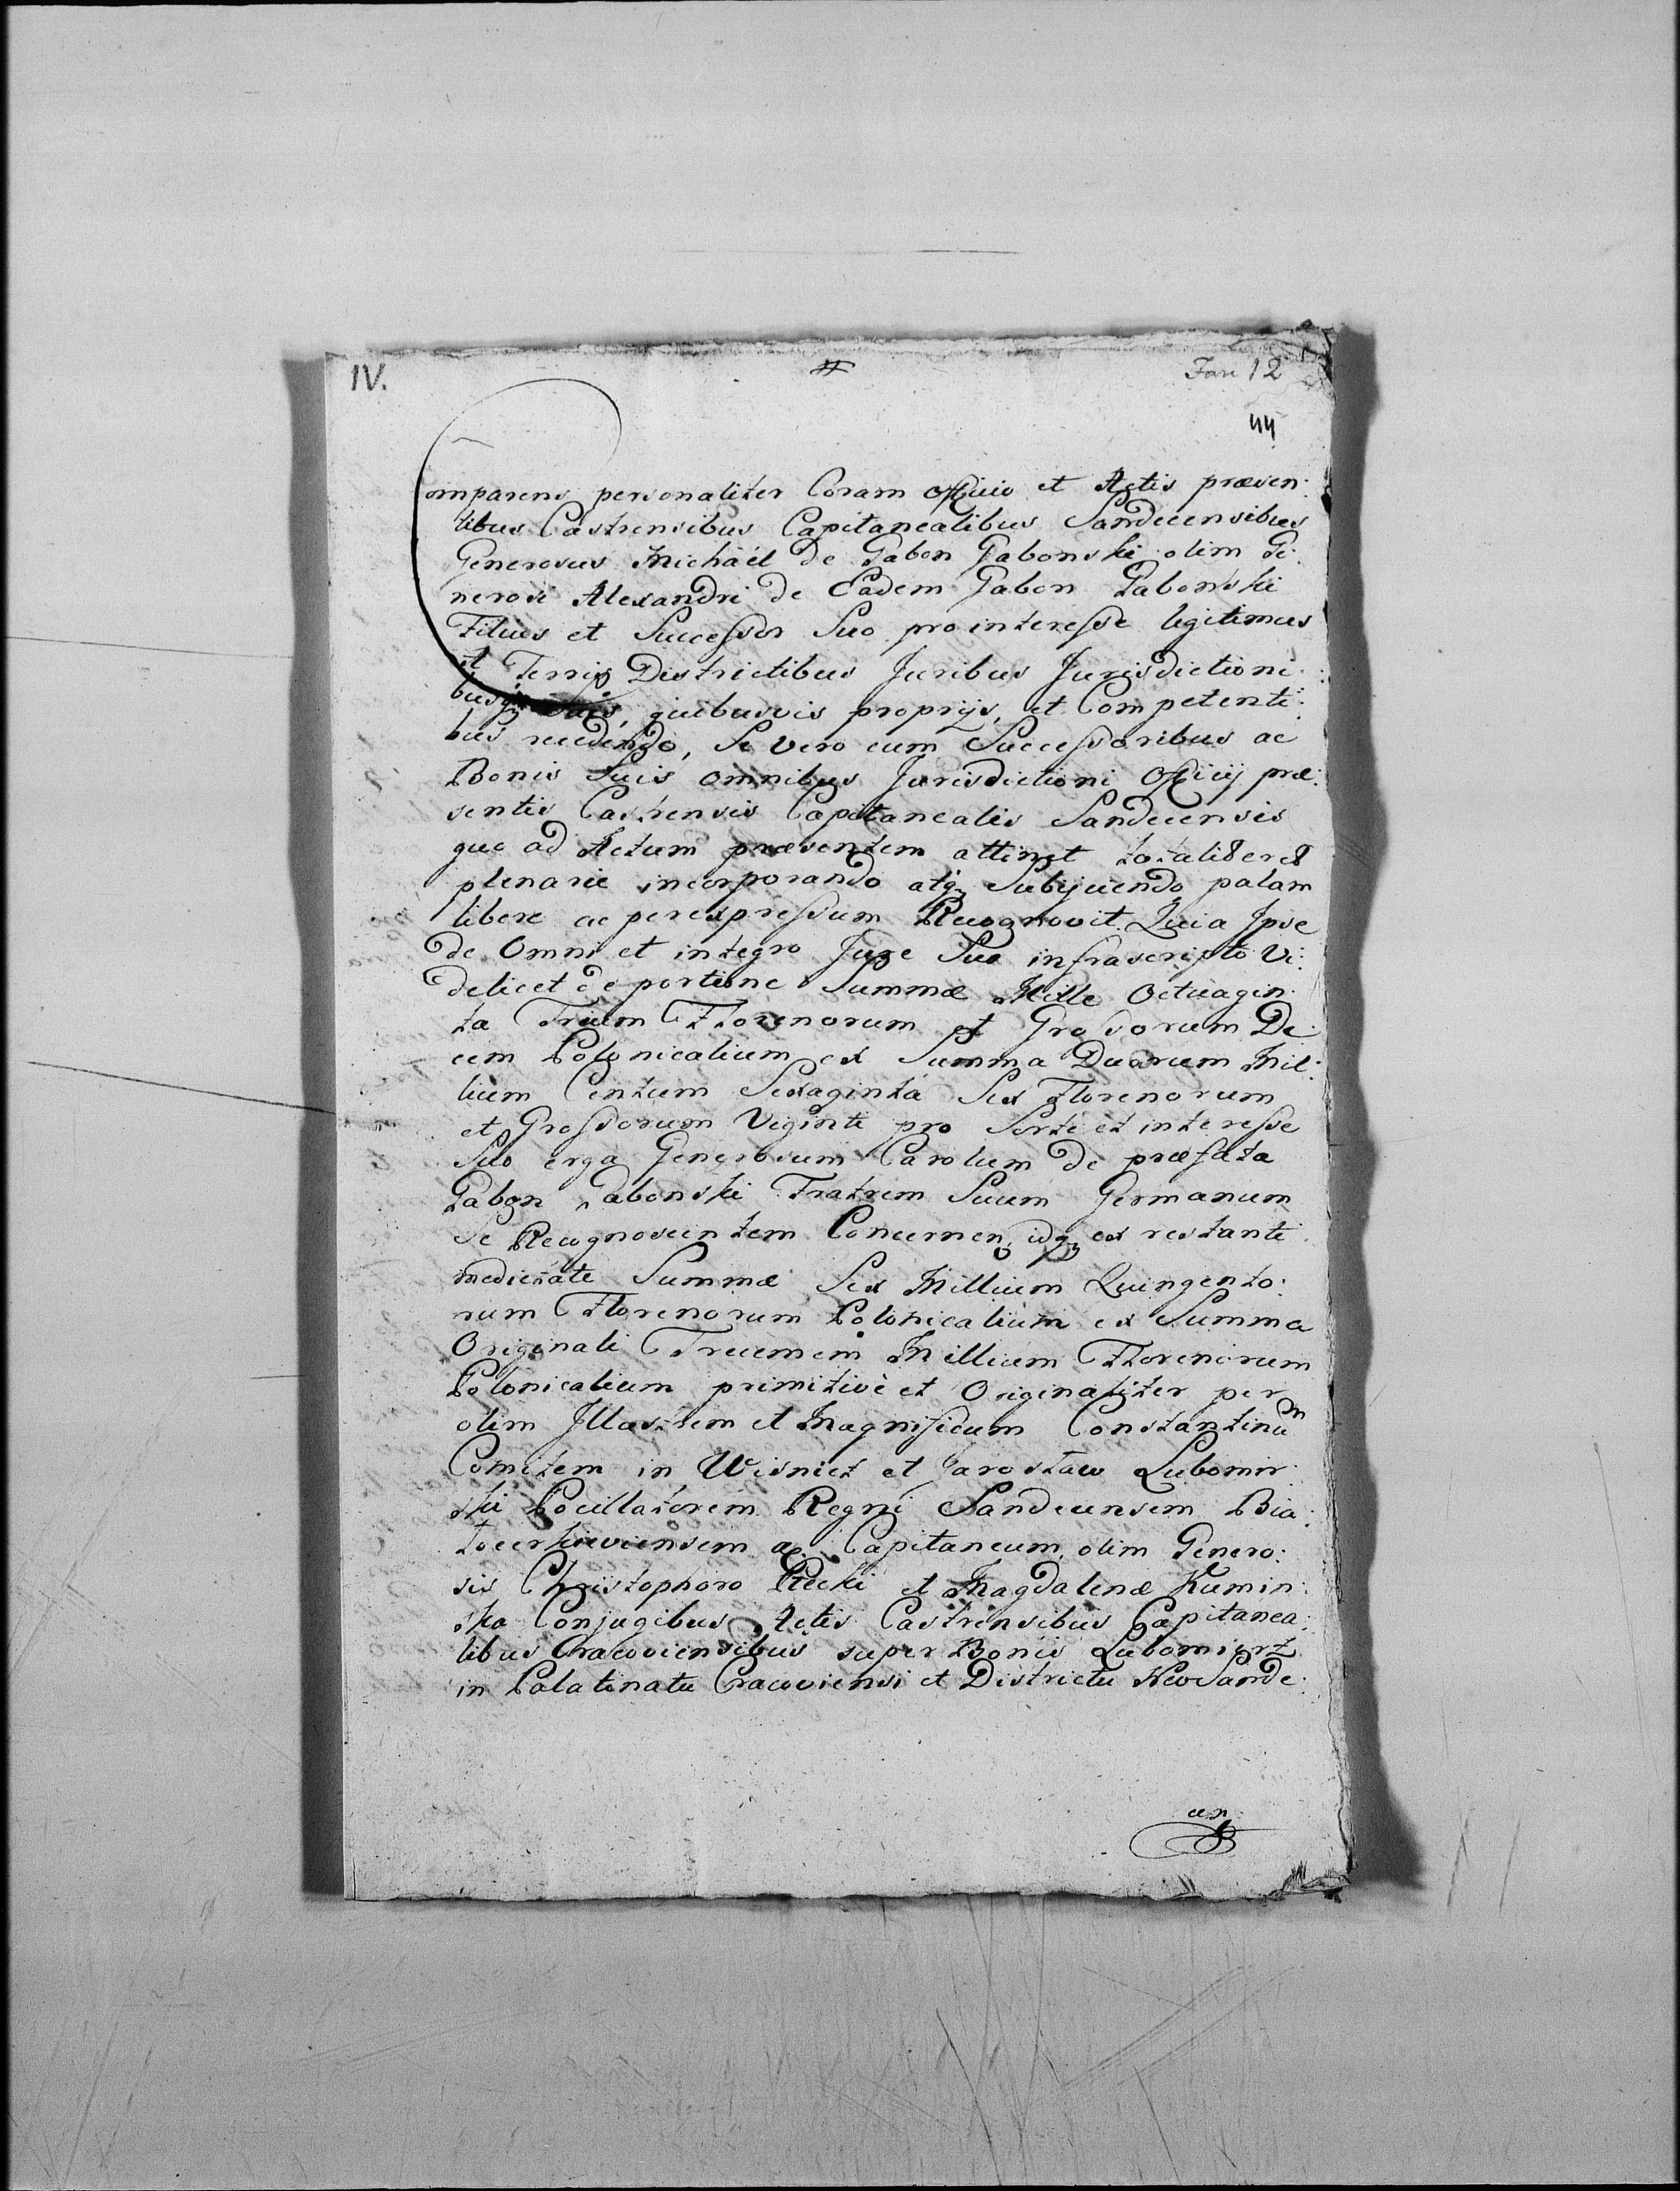 IV.
#
Fasc 12
44
Comparens personaliter Coram Officio et Actis præsen:
tibus Castrensibus Capitanealibus Sandecensibus
Generosus Michaël de Gabon Gabonski olim Ge:
nerosi Alexandri de Eadem Gabon Gabonski
Filius et Successor Suo pro interesse legitimus
A Terris Districtibus Juribus Jurisdictioni:
busq suis, quibusvis proprijs, et Competenti:
bus recedendo, Se vero cum Successoribus ac
Bonis Suis omnibus Jurisdictioni Officij præ:
sentis Castrensis Capitanealis Sandecensis
quo ad Actum præsentem attinet totaliter et
plenarie incorporando atq Subijciendo palam
libere ac per expressum Recognovit. Quia Ipse
de Omni et integro Jure Suo infrascripto Vi:
delicet de portione Summæ Mille Octuagin:
ta Trium Florenorum et Grossorum De:
cem Polonicalium ex Summa Duorum Mil:
lium Centum Sexaginta Sex Florenorum
et Grossorum Viginti pro Sorte et interesse
Suo erga Generosum Carolum de præfata
Gabon Gabonski Fratrem Suum Germanum
Se Recognoscentem Concernen idq ex restanti
medietate Summæ Sex Millium Quingento:
rum Florenorum Polonicalium ex Summa
Originali Tredecim Millium Florenorum
Polonicalium primitivè et Originaliter per
olim Illustrem et Magnificum Constantinum
Comitem in Wisnicz et Jarosław Lubomir:
ski Pocillatorem Regni Sandecensem Bia:
łocerkieviensem ac Capitaneum, olim Genero:
sis Christophoro et Magdalenæ Kumin:
ska Conjugibus Actis Castrensibus Capitanea:
libus Cracoviensibus super Bonis Lubomierz
in Palatinatu Cracoviensi et Districtu Neo Sande:
cen